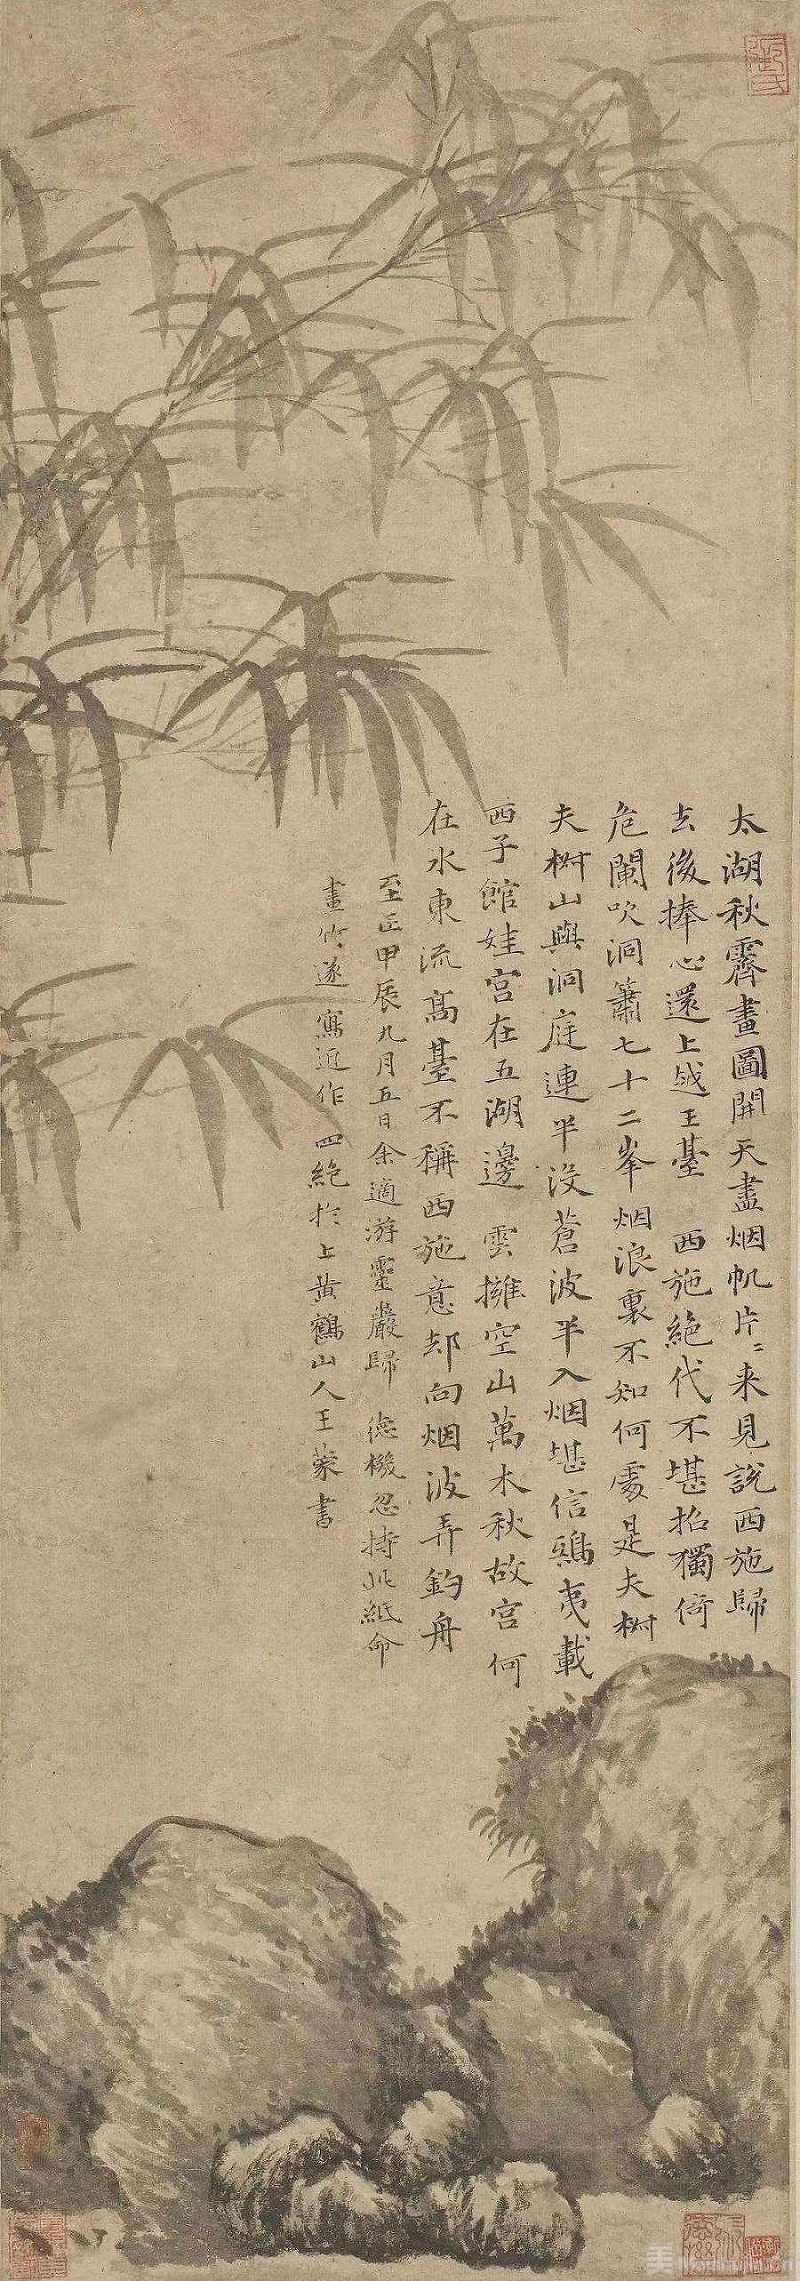 太湖秋霽畫圖開天盡烟帆片〻来見說西施歸
去後捧心還上越王臺　西施絕代不堪招獨倚
危闌吹洞簫七十二峯烟浪裏不知何處是夫椒
夫椒山與洞庭連半没蒼波半入烟堪信鴟夷載
西子館娃宮在五湖邊　雲擁空山萬木秋故宮何
在水東流髙臺不稱西施意却向烟波弄釣舟
至正甲辰九月五日余適游靈巖歸　徳機忽持此紙命
畫竹遂寫近作四絶於上黄鶴山人王蒙書